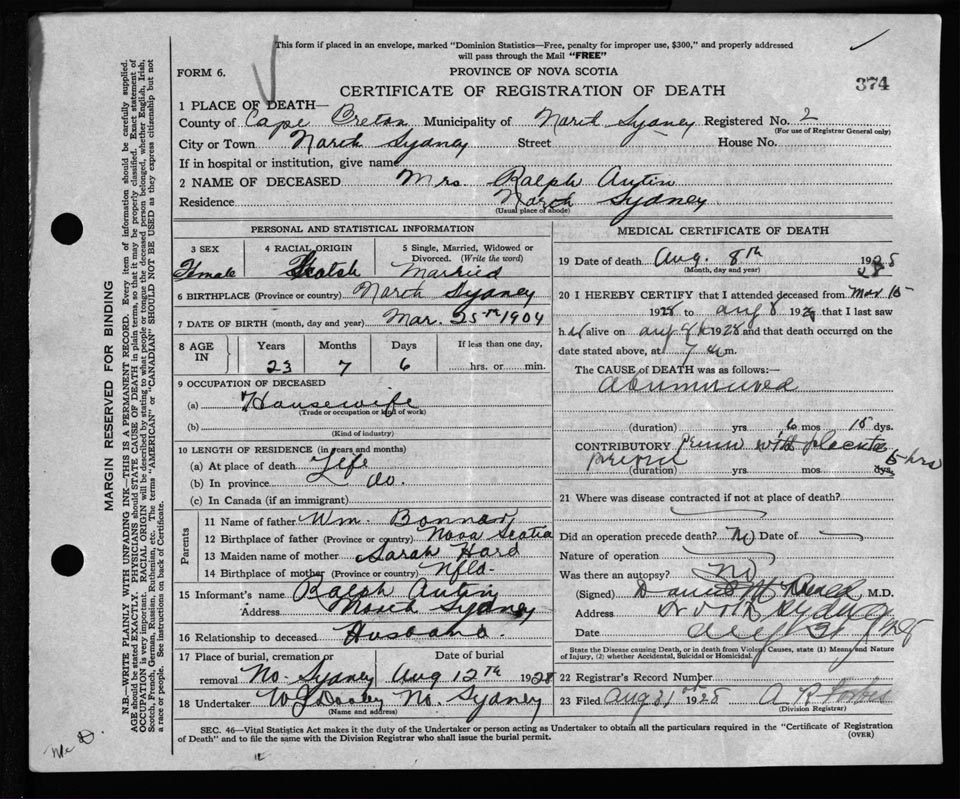 This form if placed in an envelope, marked "Dominion Statistics—Free, penalty for improper use, $300," and properly addressed
will pass through the Mail "FREE"
FORM 6.
PROVINCE OF NOVA SCOTIA
374
CERTIFICATE OF REGISTRATION OF DEATH
1 PLACE OF DEATH—
County of Cape Breton Municipality of North Sydney Registered No. 2
(For use of Registrar General only)
City or Town North Sydney Street House No.
If in hospital or institution, give name
2 NAME OF DECEASED Mrs Ralph Autin
Residence North Sydney
(Usual place of abode)
PERSONAL AND STATISTICAL INFORMATION
3 SEX 4 RACIAL ORIGIN 5 Single, Married, Widowed or
Divorced. (Write the word)
Female Scotch Married
6 BIRTHPLACE (Province or country) North Sydney
7 DATE OF BIRTH (month, day and year) Mar. 25th 1904
8 AGE IN Years Months Days If less than one day,
23 7 6 hrs. or min.
9 OCCUPATION OF DECEASED
(a) Housewife
(Trade or occupation or kind of work)
(b)
(Kind of industry)
10 LENGTH OF RESIDENCE (in years and months)
(a) At place of death Life
(b) In province do.
(c) In Canada (if an immigrant)
Parents
11 Name of father Wm. Bonnar
12 Birthplace of father (Province or country) Nova Scotia
13 Maiden name of mother Sarah Hard
14 Birthplace of mother (Province or country) Nfld-
15 Informant's name Ralph Autin
Address North Sydney
16 Relationship to deceased Husband.
17 Place of burial, cremation or Date of burial
removal No. Sydney Aug 12th 1928
18 Undertaker W J Dooley No. Sydney
(Name and address)
MEDICAL CERTIFICATE OF DEATH
19 Date of death Aug. 8th 1928
(Month, day and year)
20 I HEREBY CERTIFY that I attended deceased from Mar 15
1928 to Aug 8 1928 that I last saw
her alive on Aug 8th 1928 and that death occurred on the
date stated above, at 7 a.m.
The CAUSE of DEATH was as follows:—
(duration) yrs 6 mos 15 dys.
CONTRIBUTORY with placenta
(duration) yrs mos dys. 5 hrs
21 Where was disease contracted if not at place of death?
Did an operation precede death? No Date of
Nature of operation
Was there an autopsy? No
(Signed) M.D.
Address North Sydney
Date Aug
State the Disease causing Death, or in death from Violent Causes, state (1) Means and Nature
of Injury, (2) whether Accidental, Suicidal or Homicidal.
22 Registrar's Record Number
23 Filed Aug 21st 1928 A R Forbes
(Division Registrar)
SEC. 46—Vital Statistics Act makes it the duty of the Undertaker or person acting as Undertaker to obtain all the particulars required in the "Certificate of Registration
of Death" and to file the same with the Division Registrar who shall issue the burial permit.
(OVER)
MARGIN RESERVED FOR BINDING
N.B.—WRITE PLAINLY WITH UNFADING INK—THIS IS A PERMANENT RECORD. Every item of information should be carefully supplied.
AGE should be stated EXACTLY. PHYSICIANS should STATE CAUSE OF DEATH in plain terms, so that it may be properly classified. Exact statement of
OCCUPATION is very important. RACIAL ORIGIN will be described by stating to what people or tongue the deceased person belonged, whether English, Irish,
Scotch, French, German, Russian, Ruthenian, etc. The terms "AMERICAN" or "CANADIAN" SHOULD NOT BE USED as they express citizenship but not
a race or people. See instructions on back of Certificate.